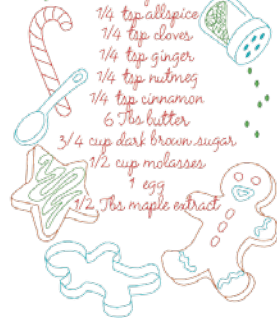 1/4 tsp allspice
1/4 tsp cloves
1/4 tsp ginger
1/4 tsp nutmeg
1/4 tsp cinnamon
6 Tbs butter
3/4 cup dark brown sugar
1/2 cup molasses
1 egg
1/2 Tbs maple extract